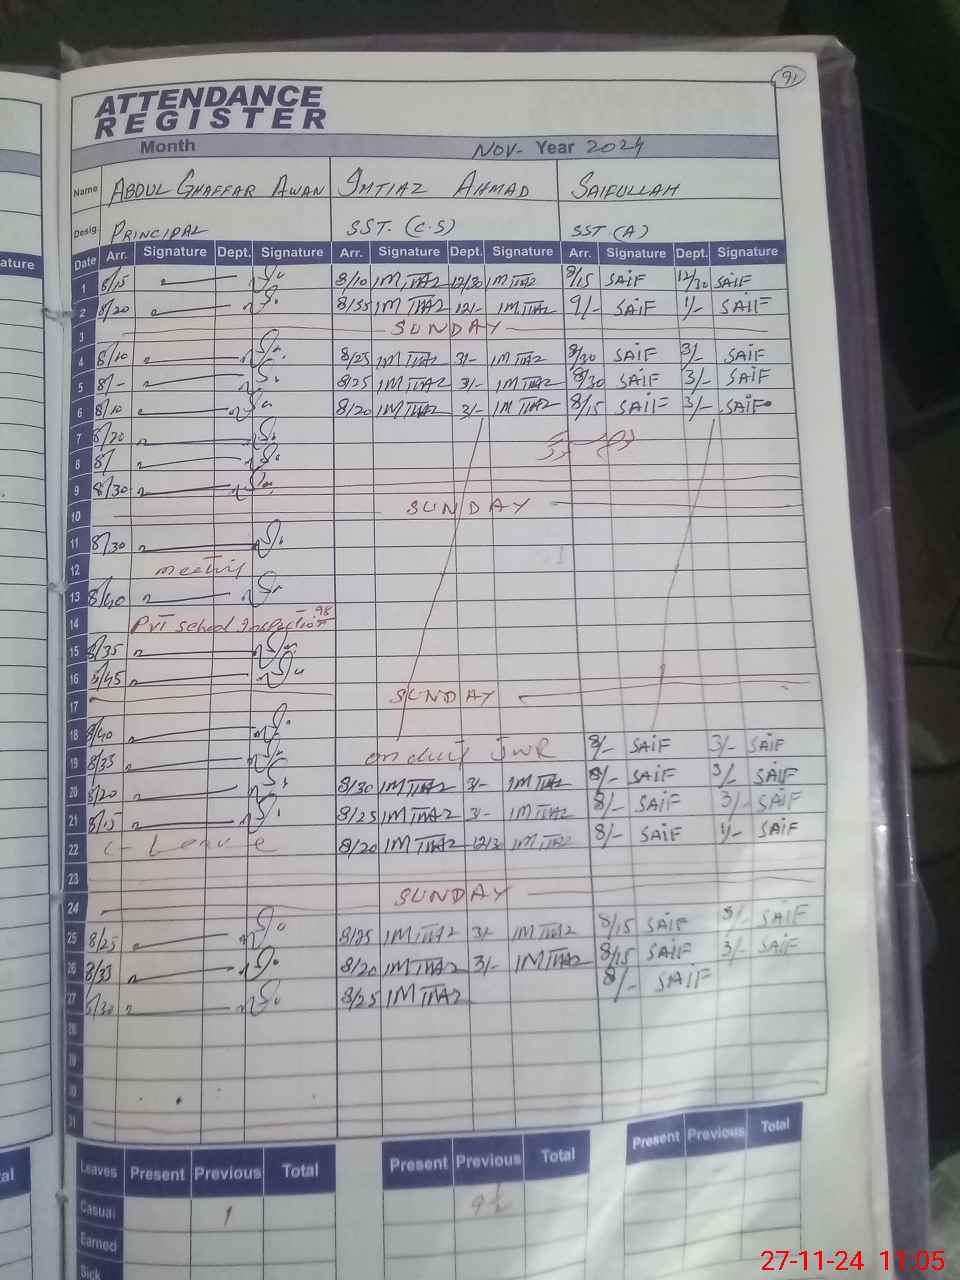 91
ATTENDANCE
REGISTER
Month NOV- Year 2024
ature
Name ABDUL GHAFFAR AWAN IMTIAZ AHMAD SAIFULLAH
Desig. PRINCIPAL SST. (C.S) SST (A)
Date Arr. Signature Dept. Signature Arr. Signature Dept. Signature Arr. Signature Dept. Signature
1 8/15 8/10 IMTIAZ 12/30 IMTIAZ 8/15 SAIF 12/30 SAIF
2 8/20 8/35 IMTIAZ 12/- IMTIAZ 9/- SAIF 1/- SAIF
3 SUNDAY
4 8/10 8/25 IMTIAZ 3/- IMTIAZ 8/30 SAIF 3/- SAIF
5 8/- 8/25 IMTIAZ 3/- IMTIAZ 8/30 SAIF 3/- SAIF
6 8/10 8/20 IMTIAZ 3/- IMTIAZ 8/15 SAIF 3/- SAIF
7 8/20
8 8/
9 8/30
10 SUNDAY
11 8/30
12 meeting
13 8/40
14 Pvt School Inspection
15 8/35
16 8/45
17 SUNDAY
18 8/40
19 8/35 on duty 8/- SAIF 3/- SAIF
20 8/20 8/30 IMTIAZ 3/- IMTIAZ 8/- SAIF 3/- SAIF
21 8/15 8/25 IMTIAZ 3/- IMTIAZ 8/- SAIF 3/- SAIF
22 C- Leave 8/20 IMTIAZ 12/30 IMTIAZ 8/- SAIF 1/- SAIF
23
24 SUNDAY
25 8/25 8/25 IMTIAZ 3/- IMTIAZ 8/15 SAIF 3/- SAIF
26 8/35 8/20 IMTIAZ 3/- IMTIAZ 8/15 SAIF 3/- SAIF
27 8/30 8/25 IMTIAZ 8/- SAIF
28
29
30
31
Leaves Present Previous Total Present Previous Total Present Previous Total
Casual 1 9½
Earned
Sick
27-11-24 11:05